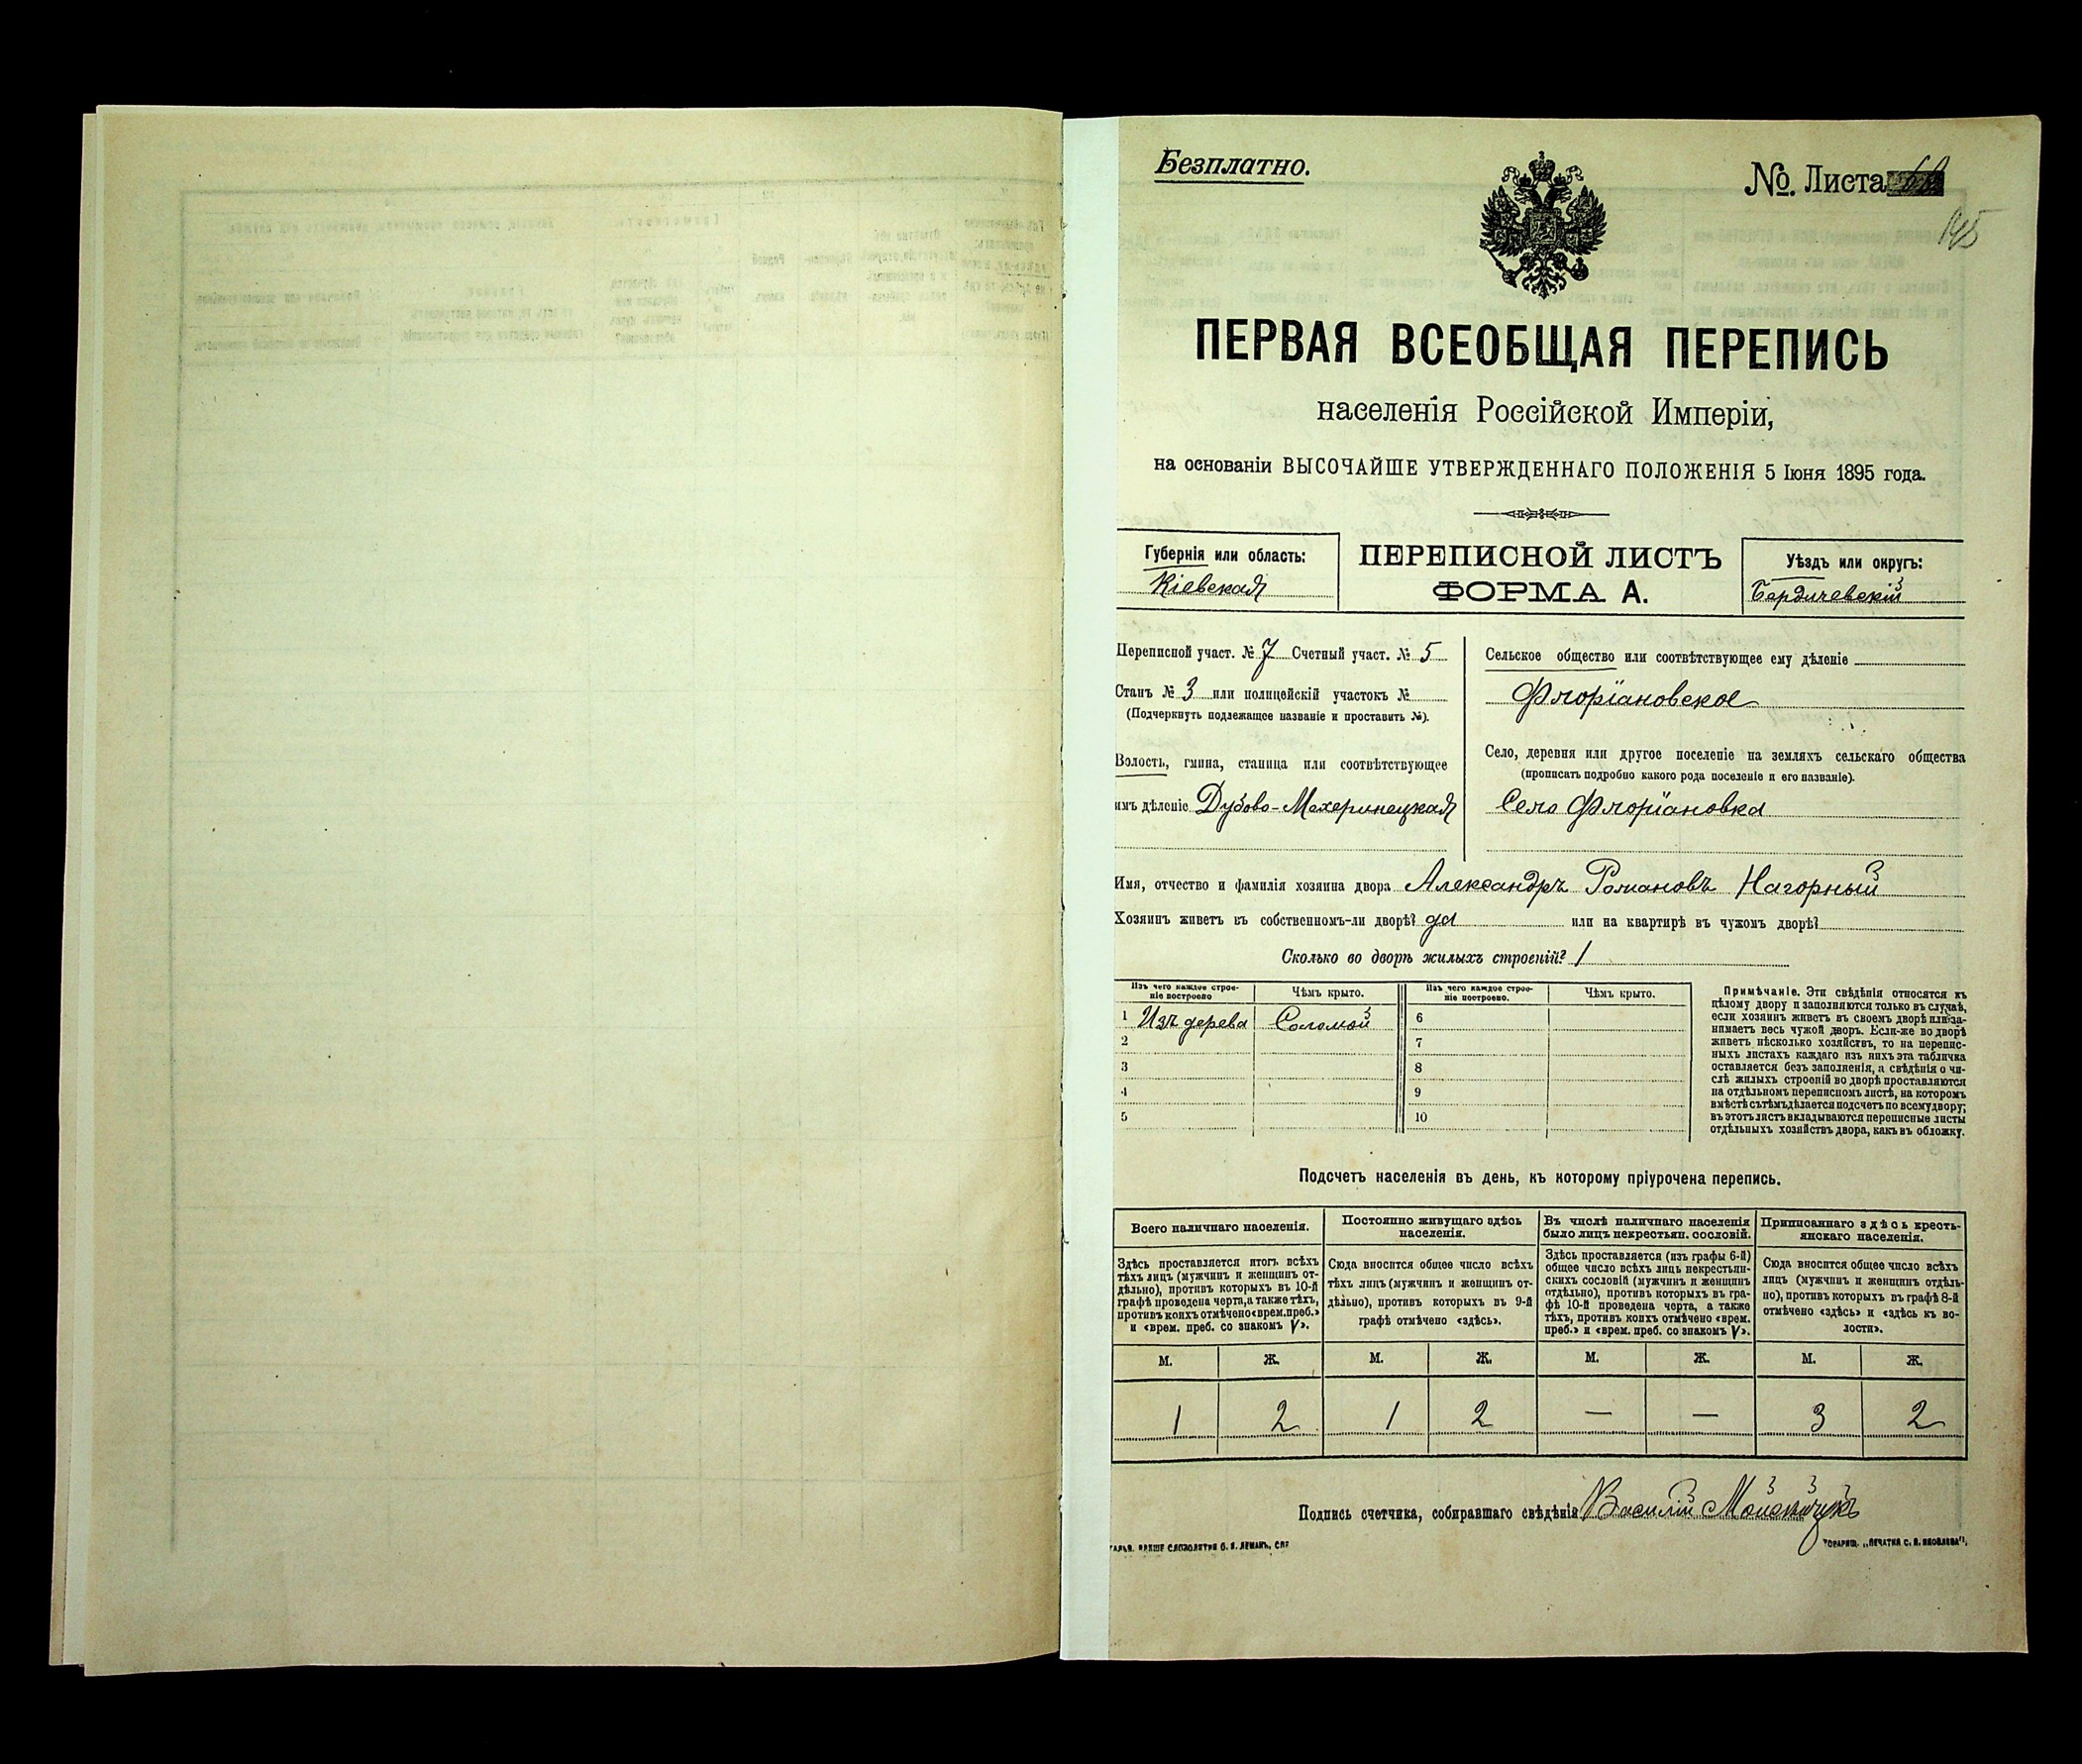 Безплатно.
№. Листа
145
ПЕРВАЯ ВСЕОБЩАЯ ПЕРЕПИСЬ
населенія Россійской Имперіи,
на основаніи ВЫСОЧАЙШЕ УТВЕРЖДЕННАГО ПОЛОЖЕНІЯ 5 Іюня 1895 года.
Губернія или область:
Кіевская
ПЕРЕПИСНОЙ ЛИСТЪ
ФОРМА А.
Уѣздъ или округъ:
Бердичевскій
Переписной участ. № 7 Счетный участ. № 5
Станъ № 3 или полицейскій участокъ №
(Подчеркнуть подлежащее названіе и проставить №).
Волость, гмина, станица или соотвѣтствующее
имъ дѣленіе Дубово-Махеринецкая
Сельское общество или соотвѣтствующее ему дѣленіе
Флоріановское
Село, деревня или другое поселеніе на земляхъ сельскаго общества
(прописать подробно какого рода поселеніе и его названіе).
Село Флоріановка
Имя, отчество и фамилія хозяина двора Александръ Романовъ Нагорный
Хозяинъ живетъ въ собственномъ-ли дворѣ? да или на квартирѣ въ чужомъ дворѣ?
Сколько во дворѣ жилыхъ строеній? 1
Изъ чего каждое строе-
ніе построено
Чѣмъ крыто.
Изъ чего каждое строе-
ніе построено.
Чѣмъ крыто.
1 Изъ дерева Соломой 6
2 7
3 8
4 9
5 10
Примѣчаніе. Эти свѣдѣнія относятся къ
цѣлому двору и заполняются только въ случаѣ,
если хозяинъ живетъ въ своемъ дворѣ или за-
нимаетъ весь чужой дворъ. Если-же во дворѣ
живетъ нѣсколько хозяйствъ, то на перепис-
ныхъ листахъ каждаго изъ нихъ эта табличка
оставляется безъ заполненія, а свѣдѣнія о чи-
слѣ жилыхъ строеній во дворѣ проставляются
на отдѣльномъ переписномъ листѣ, на которомъ
вмѣстѣ съ тѣмъ дѣлается подсчетъ по всему двору;
въ этотъ листъ вкладываются переписные листы
отдѣльныхъ хозяйствъ двора, какъ въ обложку.
Подсчетъ населенія въ день, къ которому пріурочена перепись.
Всего наличнаго населенія.
Здѣсь проставляется итогъ всѣхъ
тѣхъ лицъ (мужчинъ и женщинъ от-
дѣльно), противъ которыхъ въ 10-й
графѣ проведена черта, а также тѣхъ,
противъ коихъ отмѣчено «врем. преб.»
и «врем. преб. со знакомъ V».
Постоянно живущаго здѣсь
населенія.
Сюда вносится общее число всѣхъ
тѣхъ лицъ (мужчинъ и женщинъ от-
дѣльно), противъ которыхъ въ 9-й
графѣ отмѣчено «здѣсь».
Въ числѣ наличнаго населенія
было лицъ некрестьян. сословій.
Здѣсь проставляется (изъ графы 6-й)
общее число всѣхъ лицъ некрестьян-
скихъ сословій (мужчинъ и женщинъ
отдѣльно), противъ которыхъ въ гра-
фѣ 10-й проведена черта, а также
тѣхъ, противъ коихъ отмѣчено «врем.
преб.» и «врем. преб. со знакомъ V».
Приписаннаго здѣсь кресть-
янскаго населенія.
Сюда вносится общее число всѣхъ
лицъ (мужчинъ и женщинъ отдѣль-
но), противъ которыхъ въ графѣ 8-й
отмѣчено «здѣсь» и «здѣсь къ во-
лости».
М. Ж. М. Ж. М. Ж. М. Ж.
1 2 1 2 — — 3 2
Подпись счетчика, собиравшаго свѣдѣнія Василій
товарищ. „Печатня С. П. Яковлева“.